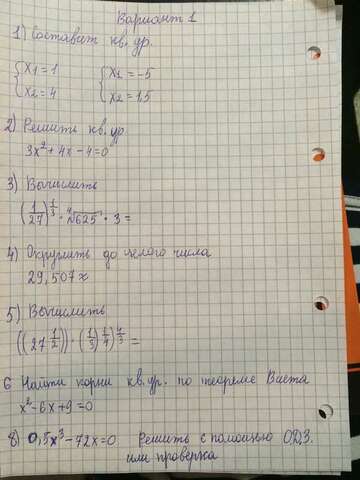 Вариант 1
1) Составит кв. ур.
{x1 = 1 {x1 = -5
{x2 = 4 {x2 = 1,5
2) Решить кв. ур
3x² + 4x - 4 = 0
3) Вычислить
(1/27)^(1/3) · ⁴√625 · 3 =
4) Округлить до целого числа
29,507x
5) Вычислить
((27^(1/2))) · (1/3)^(1/4))^(4/3) =
6 Найти корни кв. ур. по теореме Виета
x² - 6x + 9 = 0
8) 0,5x³ - 72x = 0 Решить с помощью ОДЗ.
или проверка